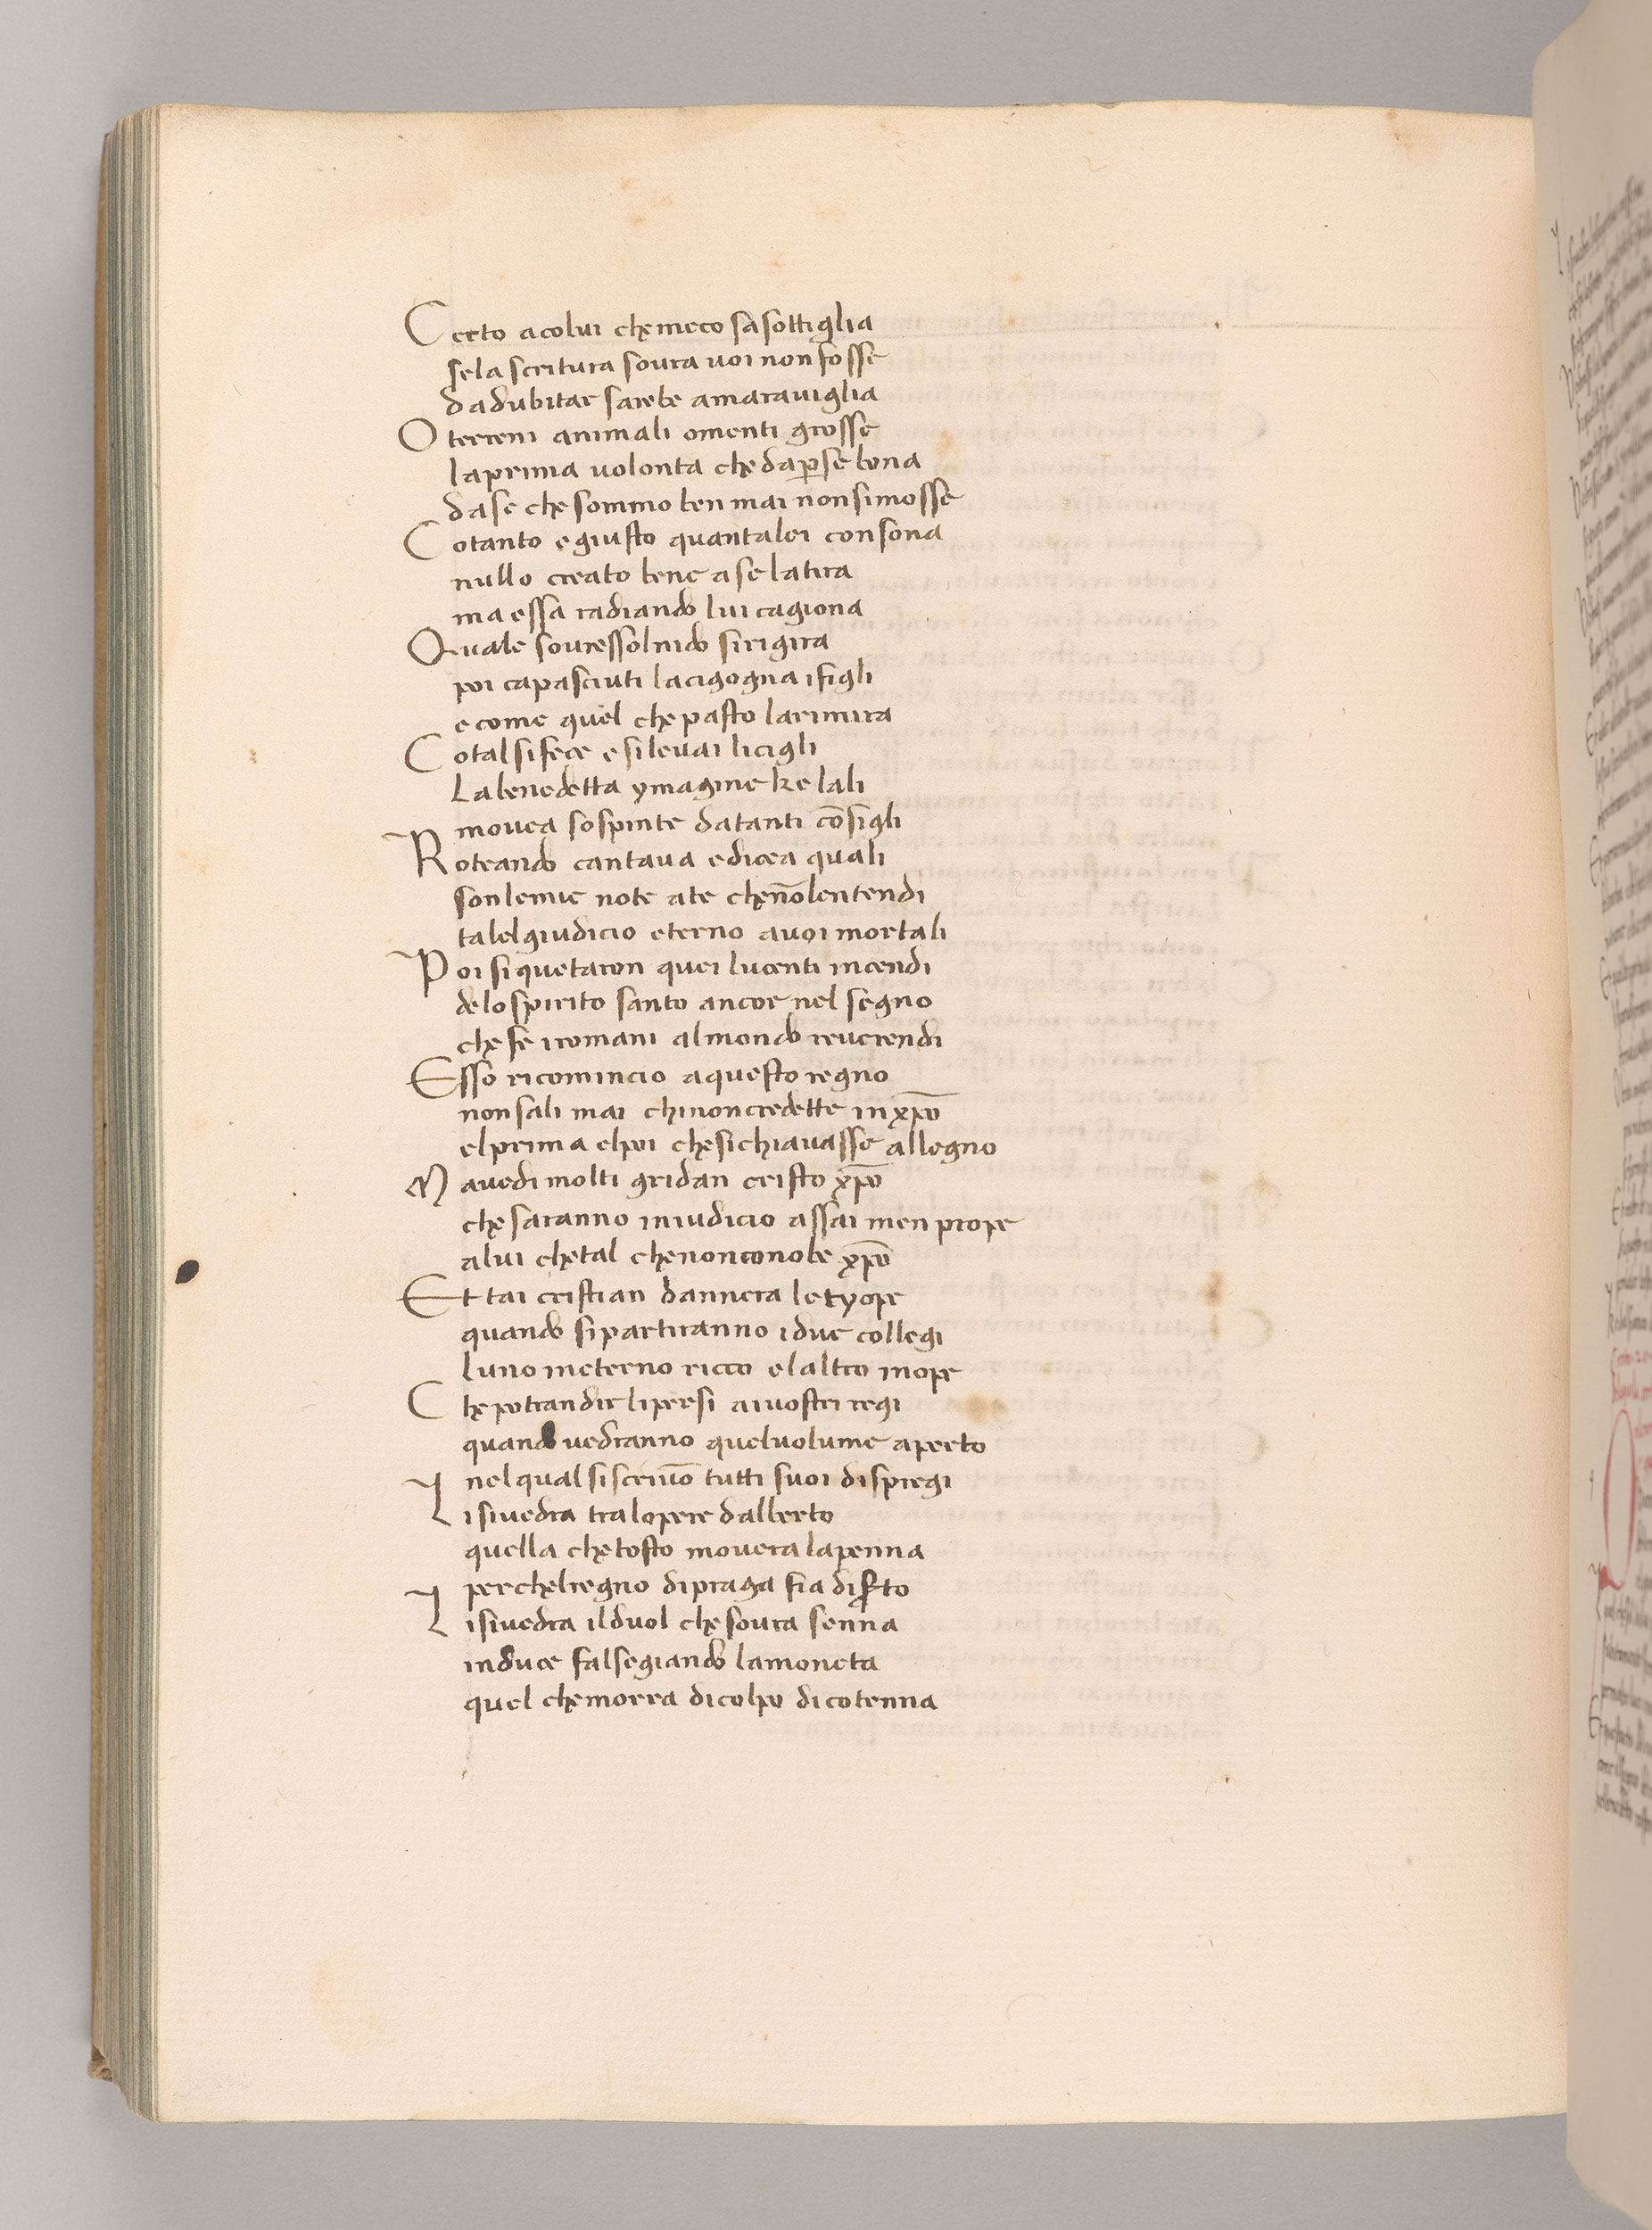 Certo acolui che meco sasottiglia
sela scritura soura uoi non fosse
dadubitar sarebe amarauiglia
O terreni animali omenti grosse
laprima uolonta che dap̱se bona
dase che sommo ben mai nonsimosse
Cotanto egiusto quantalei consona
nullo creato bene ase latira
ma essa radiando lui cagiona
Quale souressolnido sirigira
poi capasciuti lacigogna ifigli
ecome quel che pasto larimira
Cotal sifece esileuai licigli
Labenedetta ymagine ke lali
mouea sospinte datanti cōsigli
Roteando cantaua edicea quali
sonlemie note ate chenōlentendi
talelgiudicio eterno auoi mortali
Poi siquetaron quei lucenti incendi
delospirito santo ancor nel segno
che fe iromani almondo reuerendi
Esso ricomincio aquesto regno
nonsali mai chinoncredette inxp̄o
elprima elpoi chesichiauasse allegno
Mauedi molti gridan cristo xp̄o
che saranno iniudicio assai men prope
alui chetal chenonconobe xp̄o
Et tai cristian dannera letyope
quando sipartiranno idue collegi
luno ineterno ricco elaltro inope
Che potrandir lipersi aiuostri regi
quando uedranno queluolume aperto
nelqual siscriuō tutti suoi dispregi
Lisiuedra tralopere dalberto
quella chetosto mouera lapenna
perchelregno dipraga fia diserto
Lisiuedra ilduol che soura senna
induce falsegiando lamoneta
quel chemorra dicolpo dicotenna